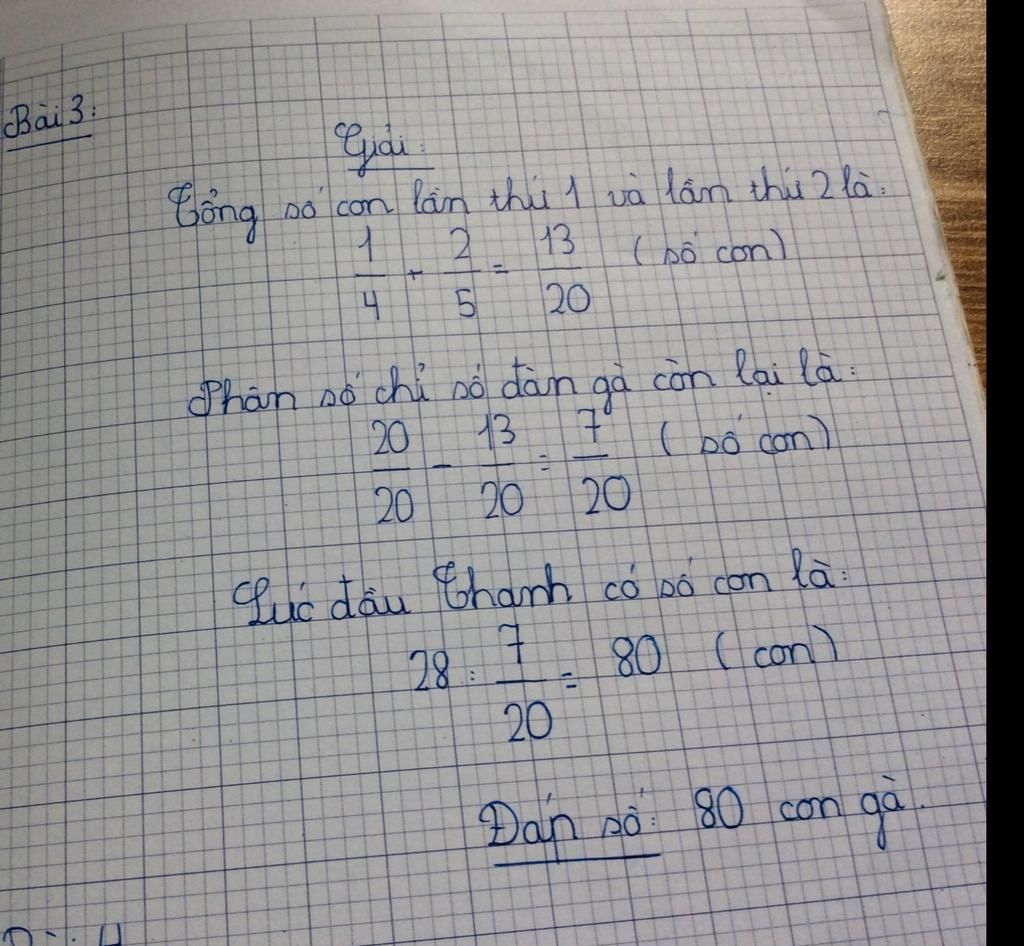 Bài 3:
Giải:
Tổng số con lần thứ 1 và lần thứ 2 là:
1/4 + 2/5 = 13/20 (số con)
Phân số chỉ số đàn gà còn lại là:
20/20 - 13/20 = 7/20 (số con)
Lúc đầu Thanh có số con là:
28 : 7/20 = 80 (con)
Đáp số: 80 con gà.